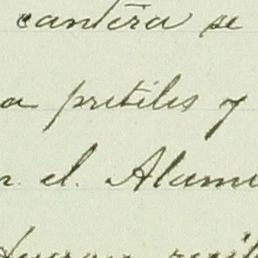 cantera se
a pretiles y
el Alame